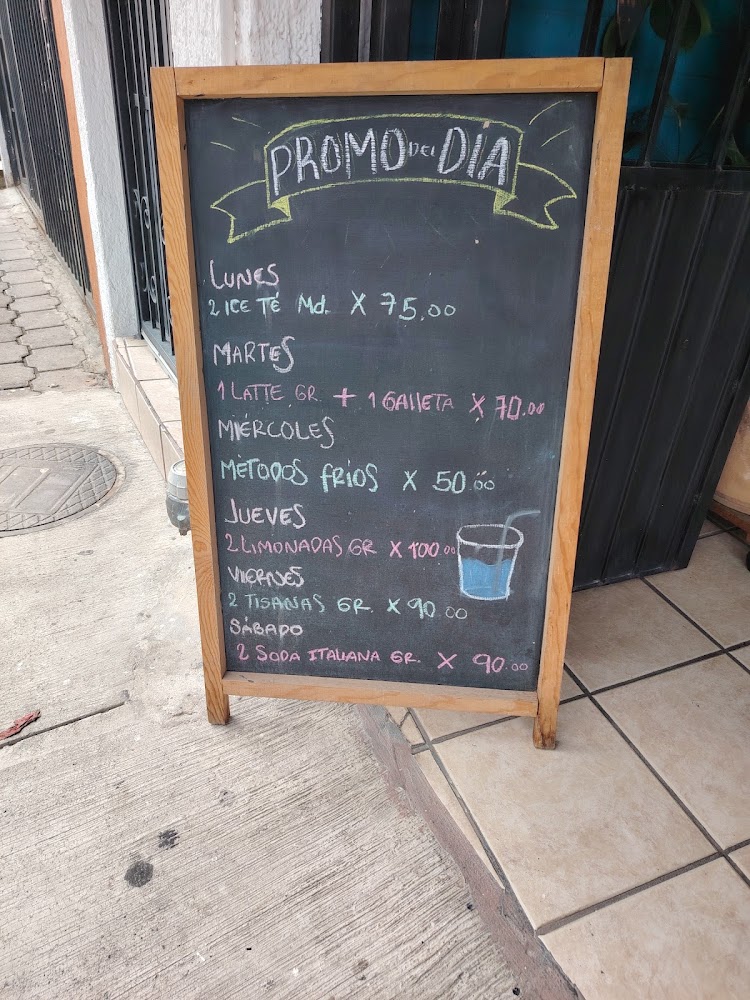 PROMO DEL DÍA
LUNES
2 ICE TÉ Md. X 75.00
MARTES
1 LATTE GR + 1 GALLETA X 70.00
MIÉRCOLES
MÉTODOS FRÍOS X 50.00
JUEVES
2 LIMONADAS GR X 100.00
VIERNES
2 TISANAS GR. X 90.00
SÁBADO
2 SODA ITALIANA GR. X 90.00